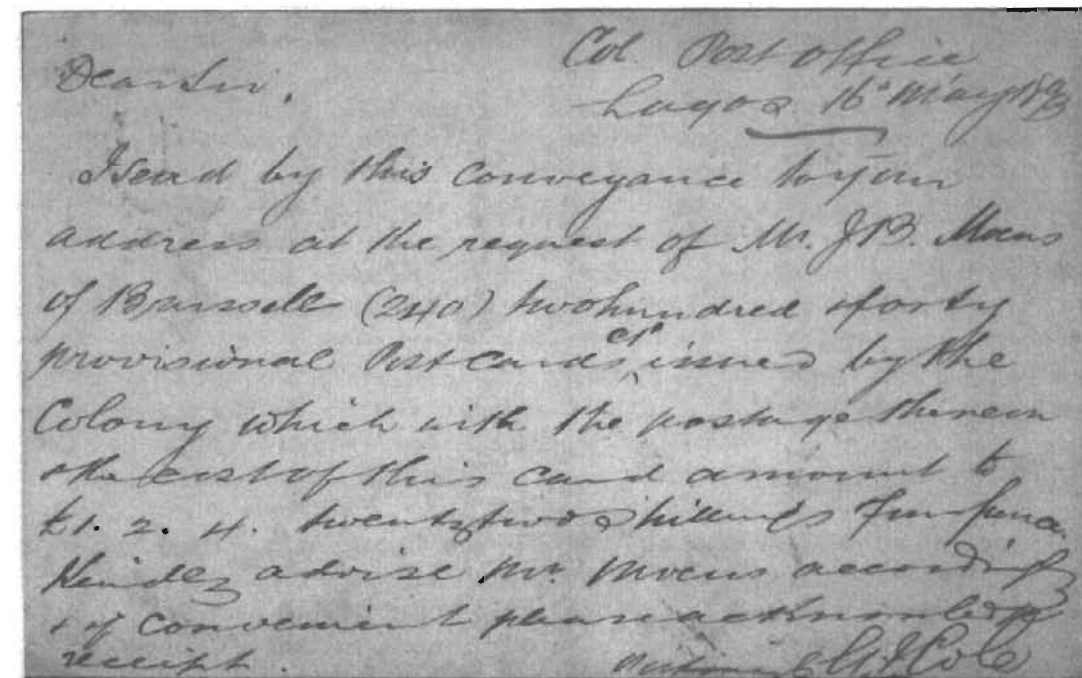 Col. Post office
Dear Sir,
Lagos 16 May 189
I send by this conveyance to your
address at the request of Mr. J B. Moens
of Brussells (240) two hundred & forty
provisional Post Cards issued by the
Colony which with the postage thereon
& the cost of this card amount to
£1. 2. 4. twenty two shillings & four pence.
Kindly advise Mr. Moens accordingly
& if convenient please acknowledge
receipt.
Cole